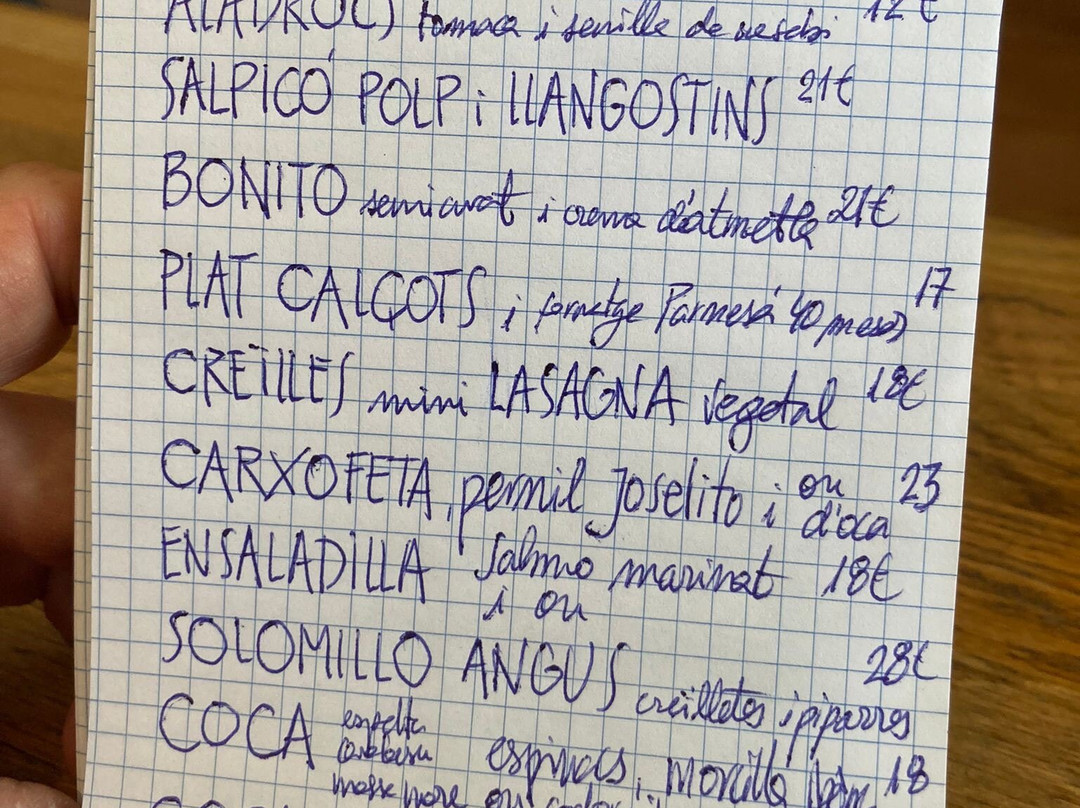 ALADROC) tomaca i senille de 12 €
SALPICÓ POLP i LLANGOSTINS 21€
BONITO semicurat i crema d'atmetla 21€
PLAT CALÇOTS i formatge Parmesà 40 mesos 17
CREÏLLES mini LASAGNA vegetal 18€
CARXOFETA, pernil Joselito i ou d'oca 23
ENSALADILLA Salmó marinat i ou 18€
SOLOMILLO ANGUS creïlletes i piparres 28€
COCA espelta carabassa espinacs, Morcilla 18